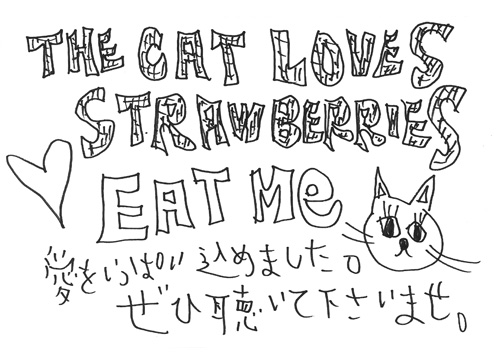 THE CAT LOVES
STRAWBERRIES
EAT Me
愛をいっぱい込めました。
ぜひ聴いて下さいませ。